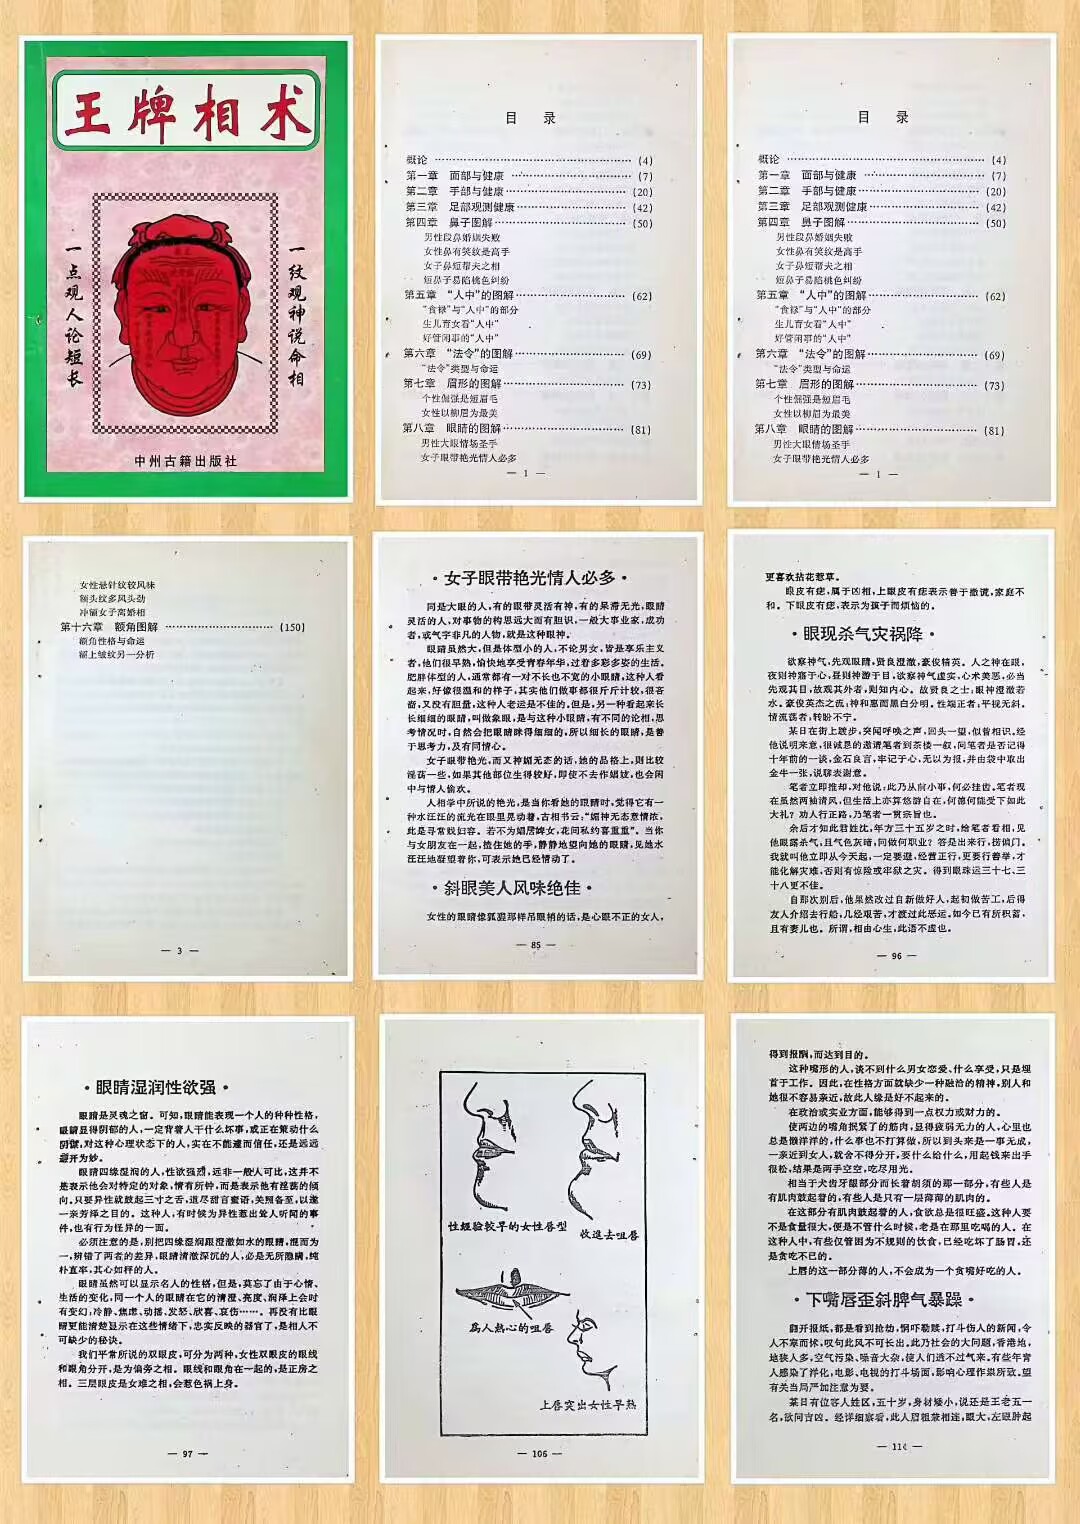 王牌相术
一点观人论短长
一纹观神说命相
中州古籍出版社
目 录
概论 …………………………………… (4)
第一章 面部与健康 ……………………… (7)
第二章 手部与健康 ……………………… (20)
第三章 足部观测健康 …………………… (42)
第四章 鼻子图解 ………………………… (50)
男性段鼻婚姻失败
女性鼻有笑纹是高手
女子鼻短帮夫之相
短鼻子易陷桃色纠纷
第五章 “人中”的图解 …………………… (62)
“食禄”与“人中”的部分
生儿育女看“人中”
好管闲事的“人中”
第六章 “法令”的图解 …………………… (69)
“法令”类型与命运
第七章 眉形的图解 ……………………… (73)
个性倔强是短眉毛
女性以柳眉为最美
第八章 眼睛的图解 ……………………… (81)
男性大眼情场圣手
女子眼带艳光情人必多
— 1 —
目 录
概论 …………………………………… (4)
第一章 面部与健康 ……………………… (7)
第二章 手部与健康 ……………………… (20)
第三章 足部观测健康 …………………… (42)
第四章 鼻子图解 ………………………… (50)
男性段鼻婚姻失败
女性鼻有笑纹是高手
女子鼻短帮夫之相
短鼻子易陷桃色纠纷
第五章 “人中”的图解 …………………… (62)
“食禄”与“人中”的部分
生儿育女看“人中”
好管闲事的“人中”
第六章 “法令”的图解 …………………… (69)
“法令”类型与命运
第七章 眉形的图解 ……………………… (73)
个性倔强是短眉毛
女性以柳眉为最美
第八章 眼睛的图解 ……………………… (81)
男性大眼情场圣手
女子眼带艳光情人必多
— 1 —
女性悬针纹较风味
额头纹多风头劲
冲额女子离婚相
第十六章 额角图解 ……………………… (150)
额角性格与命运
额上皱纹另一分析
— 3 —
·女子眼带艳光情人必多·
同是大眼的人,有的眼带灵活有神,有的呆滞无光,眼睛
灵活的人,对事物的构思远大而有胆识,一般大事业家,成功
者,或气字非凡的人物,就是这种眼神。
眼睛虽然大,但是体型小的人,不论男女,皆是享乐主义
者,他们很早熟,愉快地享受青春年华,过着多彩多姿的生活。
肥胖体型的人,通常都有一对不长也不宽的小眼睛,这种人看
起来,好像很温和的样子,其实他们做事都很斤斤计较,很吝
啬,又没有胆量,这种人老运是不佳的。但是,另一种看起来长
长细细的眼睛,叫做象眼,是与这种小眼睛,有不同的论相,思
考情况时,自然会把眼睛眯得细细的,所以细长的眼睛,是善
于思考力,及有同情心。
女子眼带艳光,而又神媚无态的话,她的品格上,则比较
淫荡一些,如果其他部位生得较好,即使不去作娼妓,也会闲
中与情人偷欢。
人相学中所说的艳光,是当你看她的眼睛时,觉得它有一
种水汪汪的流光在眼里晃动着,古相书云:“媚神无态意情浓,
此是寻常奴妇容。若不为娼居婢女,花间私约喜重重”。当你
与女朋友在一起,揸住她的手,静静地望向她的眼睛,见她水
汪汪地凝望着你,可表示她已经情动了。
·斜眼美人风味绝佳·
女性的眼睛像狐狸那样吊眼梢的话,是心眼不正的女人,
— 85 —
更喜欢拈花惹草。
眼皮有痣,属于凶相,上眼皮有痣表示善于撒谎,家庭不
和。下眼皮有痣,表示为孩子而烦恼的。
·眼现杀气灾祸降·
欲察神气,先观眼睛,贤良澄澈,豪俊精英。人之神在眼,
夜则神寤于心,昼则神游于目,欲察神气虚实,心术美恶,必当
先观其目,故观其外者,则知内心。故贤良之士,眼神澄澈若
水。豪俊英杰之流,神和惠而黑白分明。性端正者,平视无斜。
情流荡者,转盼不宁。
某日在街上踱步,突闻呼唤之声,回头一望,似曾相识。经
他说明来意,很诚恳的邀请笔者到茶楼一叙,问笔者是否记得
十年前的一谈,金石良言,牢记于心,无以为报,并由袋中取出
金牛一张,说聊表谢意。
笔者立即推却,对他说,此乃从前小事,何必挂齿。笔者现
在虽然两袖清风,但生活上亦算悠游自在,何德何能受下如此
大礼?劝人行正路,乃笔者一贯宗旨也。
余后才知此君姓沈,年方三十五岁之时,给笔者看相,见
他眼露杀气,且气色灰暗,问做何职业?答是出来行,捞偏门。
我就叫他立即从今天起,一定要避,经营正行,更要行善举,才
能化解灾难,否则有惊险或牢狱之灾。得到眼珠运三十七、三
十八更不佳。
自那次别后,他果然改过自新做好人,起初做苦工,后得
友人介绍去行船,几经艰苦,才渡过此恶运。如今已有所积蓄,
且有妻儿也。所谓,相由心生,此语不虚也。
— 96 —
·眼睛湿润性欲强·
眼睛是灵魂之窗。可知,眼睛能表现一个人的种种性格,
眼睛显得阴郁的人,一定背着人干什么坏事,或正在策动什么
阴谋,对这种心理状态下的人,实在不能遽而信任,还是远远
避开为妙。
眼睛四缘湿润的人,性欲强烈,远非一般人可比,这并不
是表示他会对特定的对象,情有所钟,而是表示他有淫荡的倾
向。只要异性就鼓起三寸之舌,道尽甜言蜜语,关照备至,以邀
一亲芳泽之目的。这种人,有时候为异性惹出耸人听闻的事
件,也有行为怪异的一面。
必须注意的是,别把四缘湿润跟澄澈如水的眼睛,混而为
一,辨错了两者的差异,眼睛清澈深沉的人,必是无所隐瞒,纯
朴直率,其心如秤的人。
眼睛虽然可以显示名人的性格,但是,莫忘了由于心情、
生活的变化,同一个人的眼睛在它的清澄、亮度、润泽上会时
有变幻,冷静、焦虑、动摇、发怒、欣喜、哀伤……。再没有比眼
睛更能清楚显示在这些情绪下,忠实反映的器官了,是相人不
可缺少的秘诀。
我们平常所说的双眼皮,可分为两种,女性双眼皮的眼线
和眼角分开,是为偏旁之相。眼线和眼角在一起的,是正房之
相。三层眼皮是女难之相,会惹色祸上身。
— 97 —
性经验较早的女性唇型
收进去咀唇
为人热心的咀唇
上唇突出女性早熟
— 106 —
得到报酬,而达到目的。
这种嘴形的人,谈不到什么男女恋爱、什么享受,只是埋
首于工作。因此,在性格方面就缺少一种融洽的精神,别人和
她很不容易亲近,故此人缘是好不起来的。
在政治或实业方面,能够得到一点权力或财力的。
使两边的嘴角抿紧了的筋肉,显得疲弱无力的人,心里也
总是懒洋洋的,什么事也不打算做,所以到头来是一事无成,
一亲近到女人,就舍不得分开,要什么给什么,用起钱来出手
很松,结果是两手空空,吃尽用光。
相当于犬齿牙龈部分而长着胡须的那一部分,有些人是
有肌肉鼓起着的,有些人是只有一层薄薄的肌肉的。
在这部分有肌肉鼓起着的人,食欲总是很旺盛。这种人要
不是食量很大,便是不管什么时候,老是在那里吃喝的人。在
这种人中,有些仅管因为不规则的饮食,已经吃坏了肠胃,还
是贪吃不已的。
上唇的这一部分薄的人,不会成为一个贪嘴好吃的人。
·下嘴唇歪斜脾气暴躁·
翻开报纸,都是看到抢劫,恫吓勒赎,打斗伤人的新闻,令
人不寒而怵,叹句此风不可长出。此乃社会的大问题,香港地,
地狭人多,空气污染、噪音大杂,使人们透不过气来。有些年青
人感染了洋化,电影、电视的打斗场面,影响心理作祟所致。望
有关当局严加注意为要。
某日有位客人姓区,五十岁,身材矮小,说还是王老五一
名,欲问吉凶。经详细察看,此人眉粗兼相连,眼大,左眼肿起